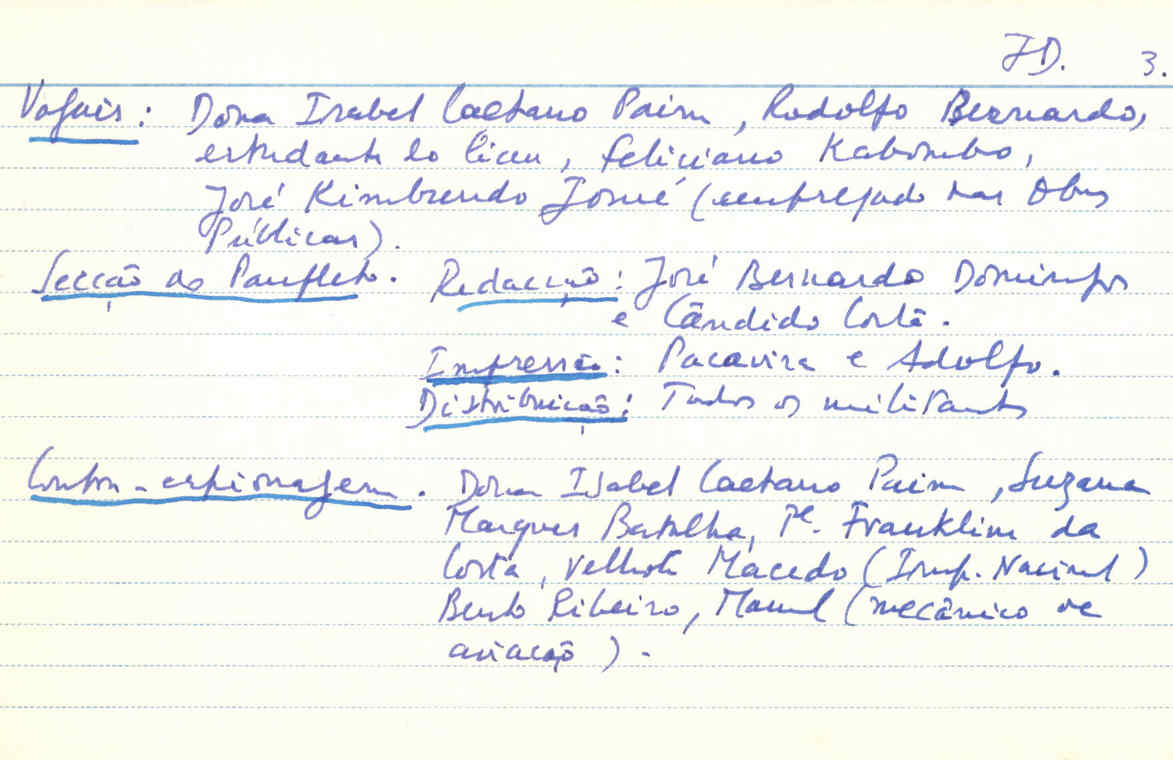 JD. 3.
Vogais: Dona Isabel Caetano Paim, Rodolfo Bernardo,
estudante do liceu, Feliciano Kabombo,
José Kimbuendo Josué (empregado nas Obras
Públicas).
Secção do Panfleto. Redacção: José Bernardo Domingos
e Cândido Costa.
Impressão: Pacavira e Adolfo.
Distribuição: Todos os militantes
Contra-espionagem. Dona Isabel Caetano Paim, Suzana
Marques Batalha, Pe. Franklim da
Costa, Velhote Macedo (Imp. Nacional)
Bento Ribeiro, Manuel (mecânico de
aviação).